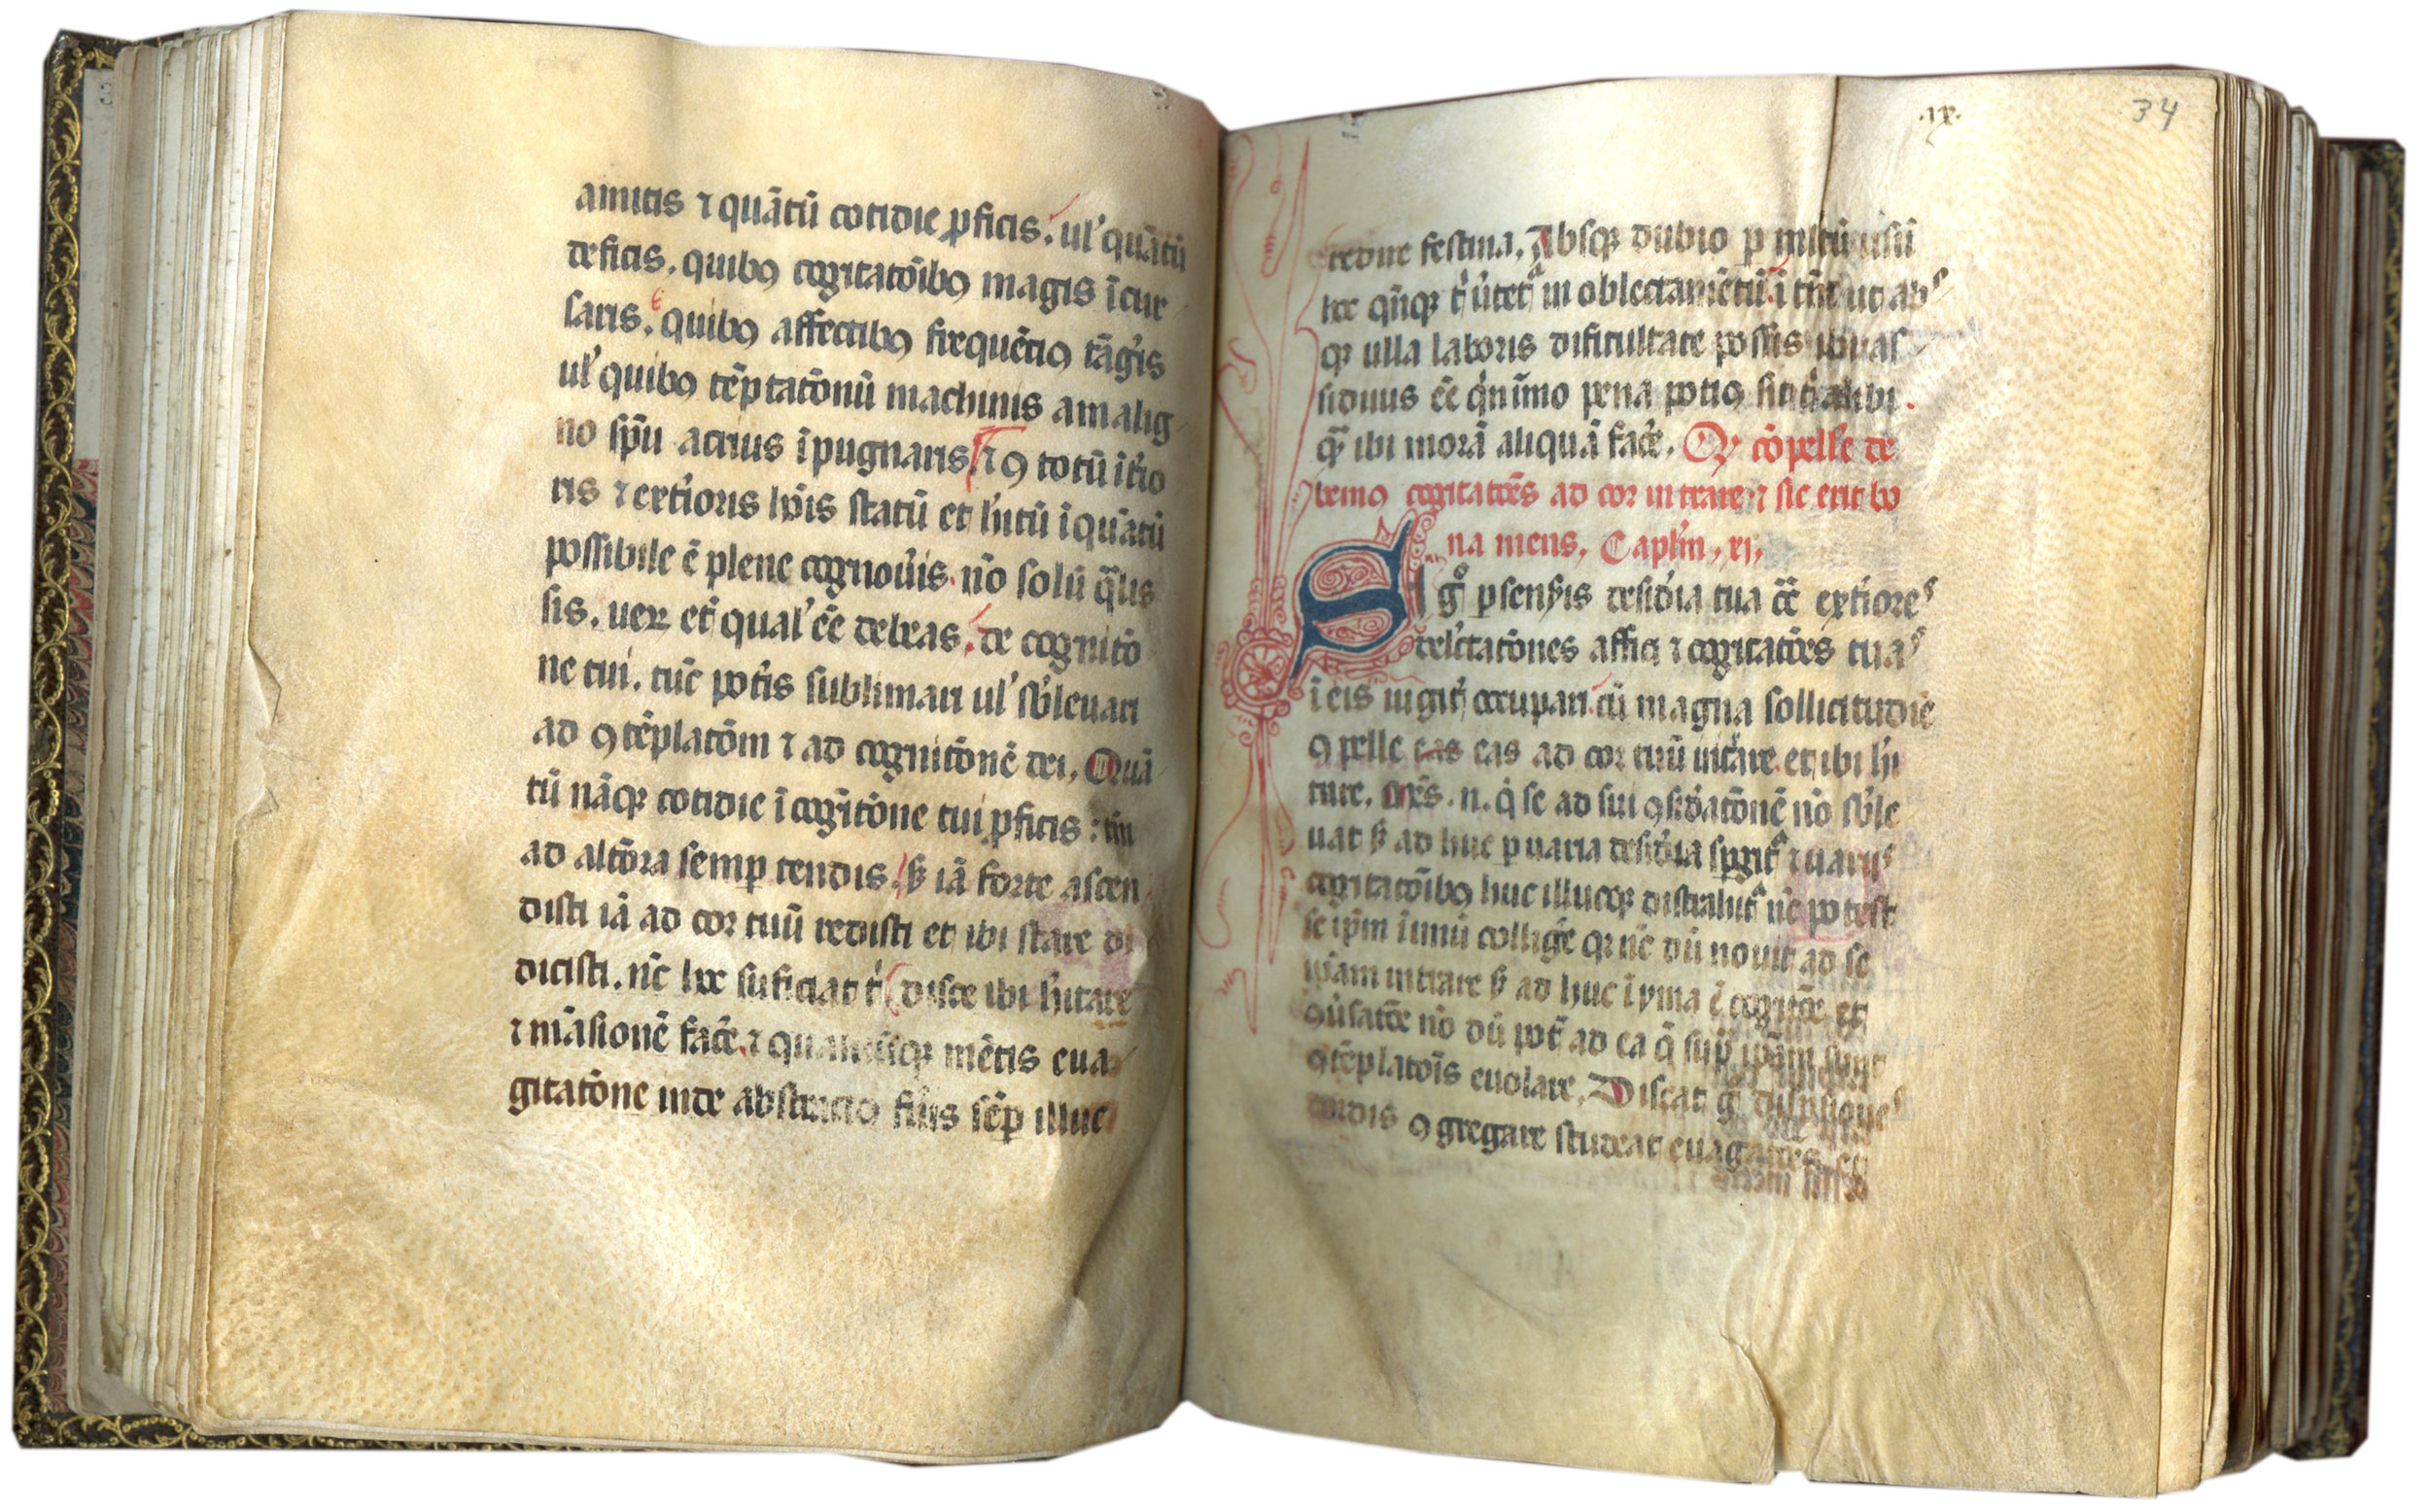 amittis ⁊ quātū cotidie ꝓficis. ul' quātū
deficis. quibꝯ cogitatōibꝯ magis īcur
saris. quibꝯ affectibꝯ frequētiꝯ tāg'is
ul' quibꝯ tēptatōnū machinis a malig
no sp̄u acrius īpugnaris. si ꝯ totū īt'io
ris ⁊ ext'ioris ho'is statū et h'itū ī quātū
possibile ē plene cognou'is. nō solū q̄lis
sis. ueꝝ et̄ qual' ēē debeas. de cognitō
ne tui. tūc pot'is sublimari ul' sb'leuari
ad ꝯtēplatōm ⁊ ad cognitōnē dei. Quā
tū nāqꝫ cotidie ī coḡitōne tui ꝓficis: tm̄
ad altōra semꝑ tendis. sꝫ iā forte ascen
disti iā ad cor tuū redisti et ibi stare di
dicisti. nc̄ hoc suficiat t' disce ibi h'itare
⁊ māsionē fac'e. ⁊ qualicūqꝫ mētis eua
gitatōne inde abstractꝯ fu'is sēꝑ illuc
34
.ix.
redire festina. Absqꝫ dubio ꝑ mltū usū
hoc qn̄qꝫ t' u'tet̄ in oblectamētū ī tm̄ ut abs
qꝫ ulla laboris dificultate possis ibi as
siduus ēē q'nīmo pena potiꝯ sit t' alibi
q̄ ibi morā aliquā fac'e. Qꝫ cōpelle'
bemꝯ cogitatōēs ad cor intrare ⁊ sic erit bo
na mens. Capl'm. xi.
SI g° p̄sent̄is desid'ia tua cc̄ ext'iores
delc̄tatōnes affici ⁊ cogitatōes tuas
ī eis iugit' occupari. cū magna sollicitudīe
ꝯpelle eas eas ad cor tuū int'are. et ibi h'i
tare. mēs. n. q' se ad sui ꝯsid'atōnē nō sb'le
uat sꝫ ad huc ꝑ uaria desid'ia spgit̄ ⁊ uariis
cogitatōibꝯ huc illucqꝫ distrahit̄ nc̄ potest
se ip̄m ī unū collig'e qꝛ nc̄ dū nouit ad se
ip̄am intrare sꝫ ad huc īyma ī cogitōe et
ꝯu'satōe nō dū pot̄ ad ea q̄ sup̄ ip̄am sunt
ꝯtēplatōis euolare. Discat g° disp̄siones
cordis ꝯgregare studeat euagatōes et